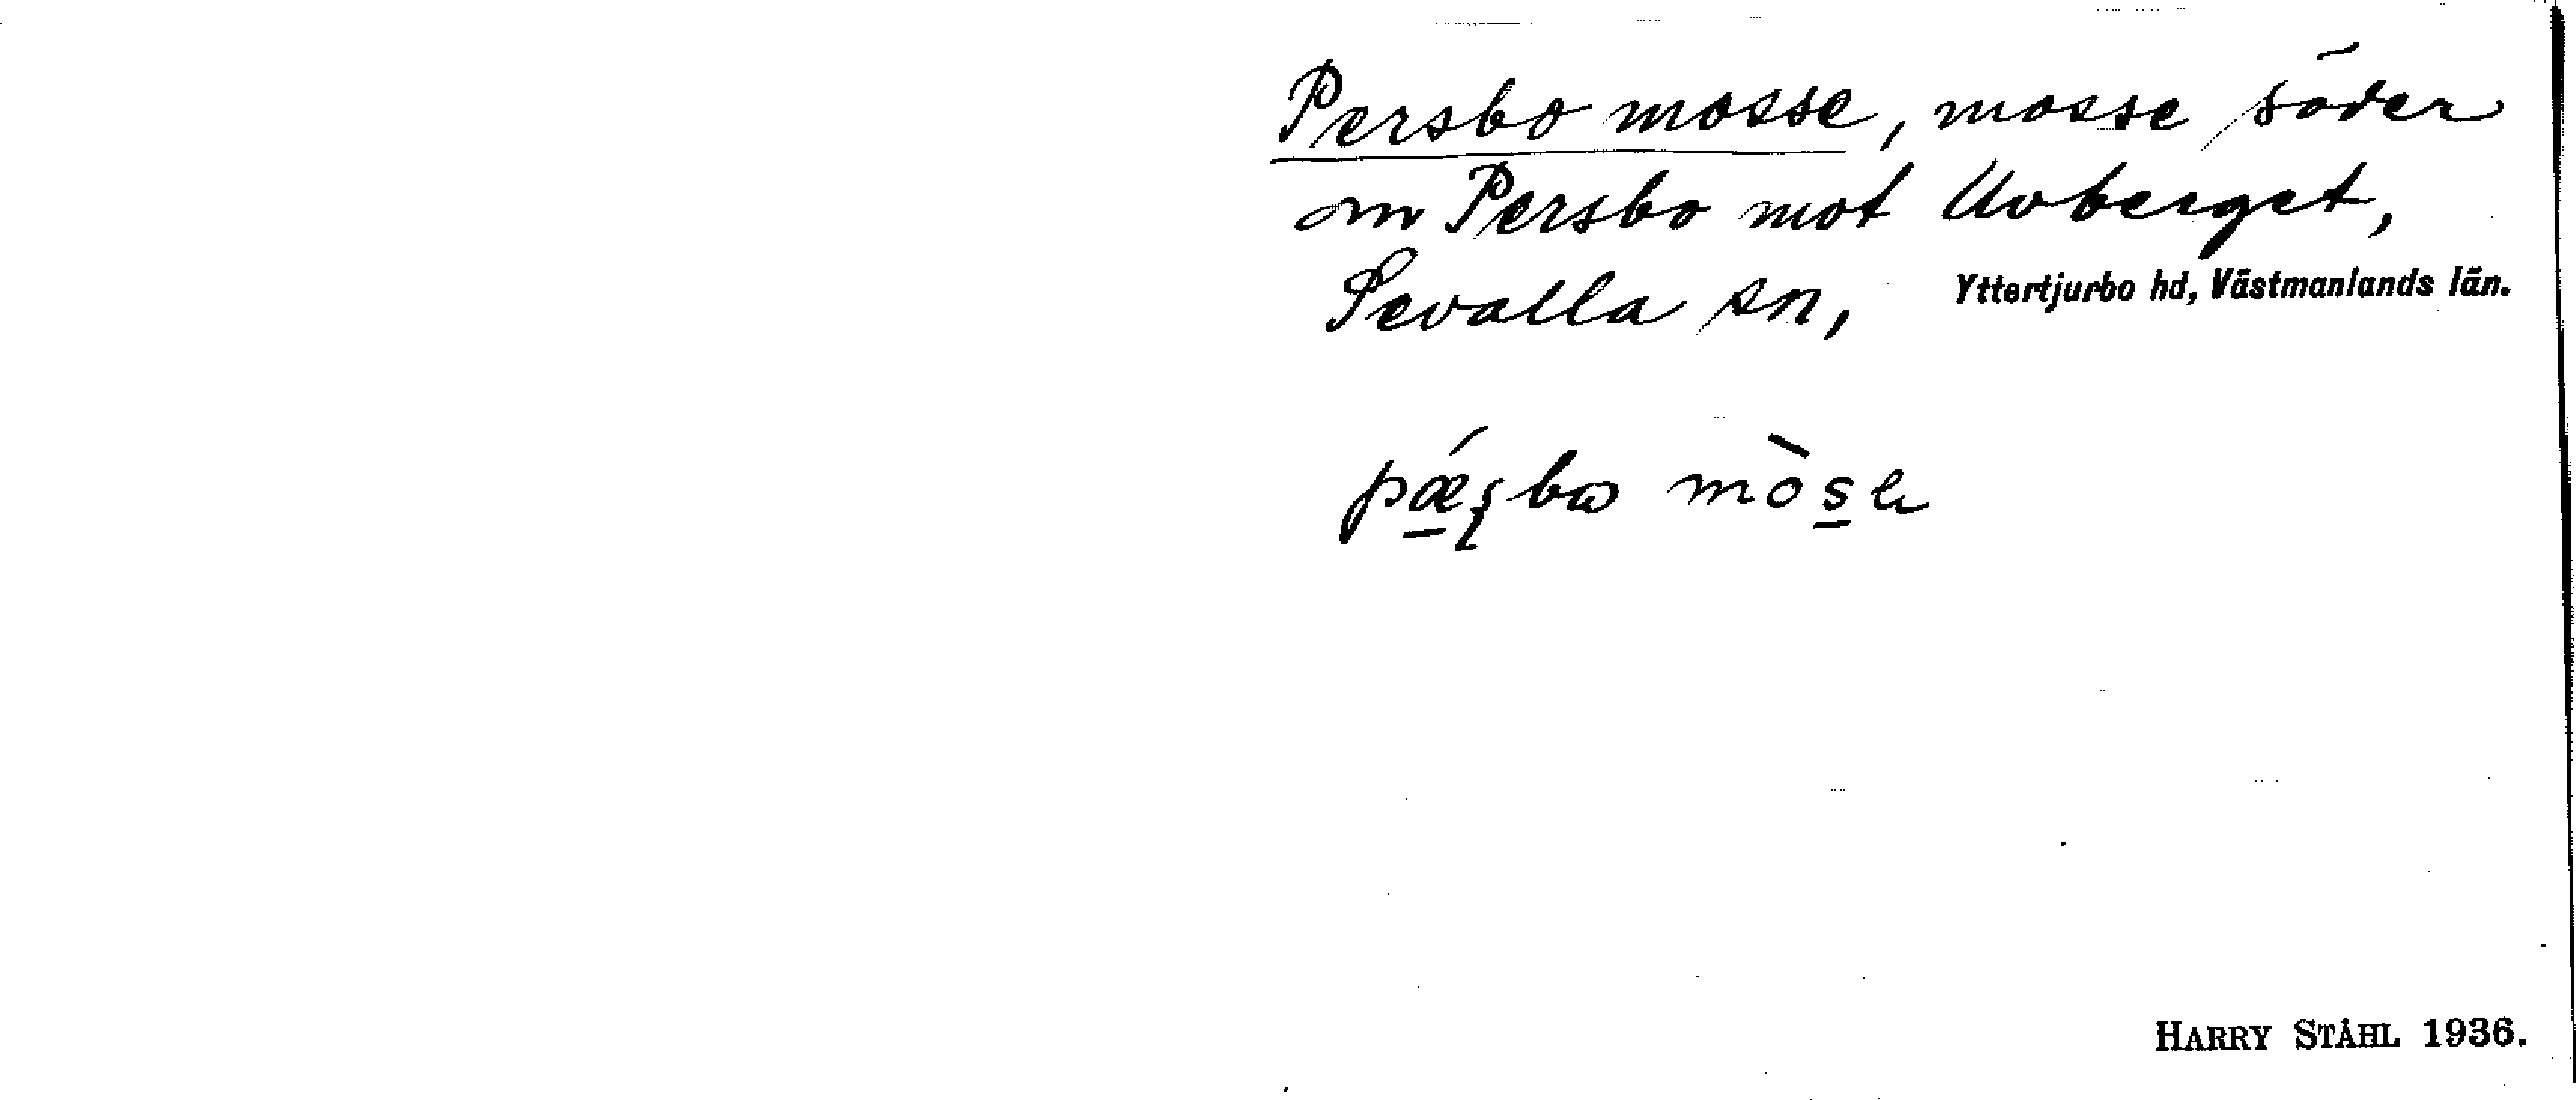 Persbo mosse, mosse söder
om Persbo mot Uvberget,
Sevalla sn, Yttertjurbo hd, Västmanlands län.
pǽʂbω mòse
HARRY STÅHL 1936.